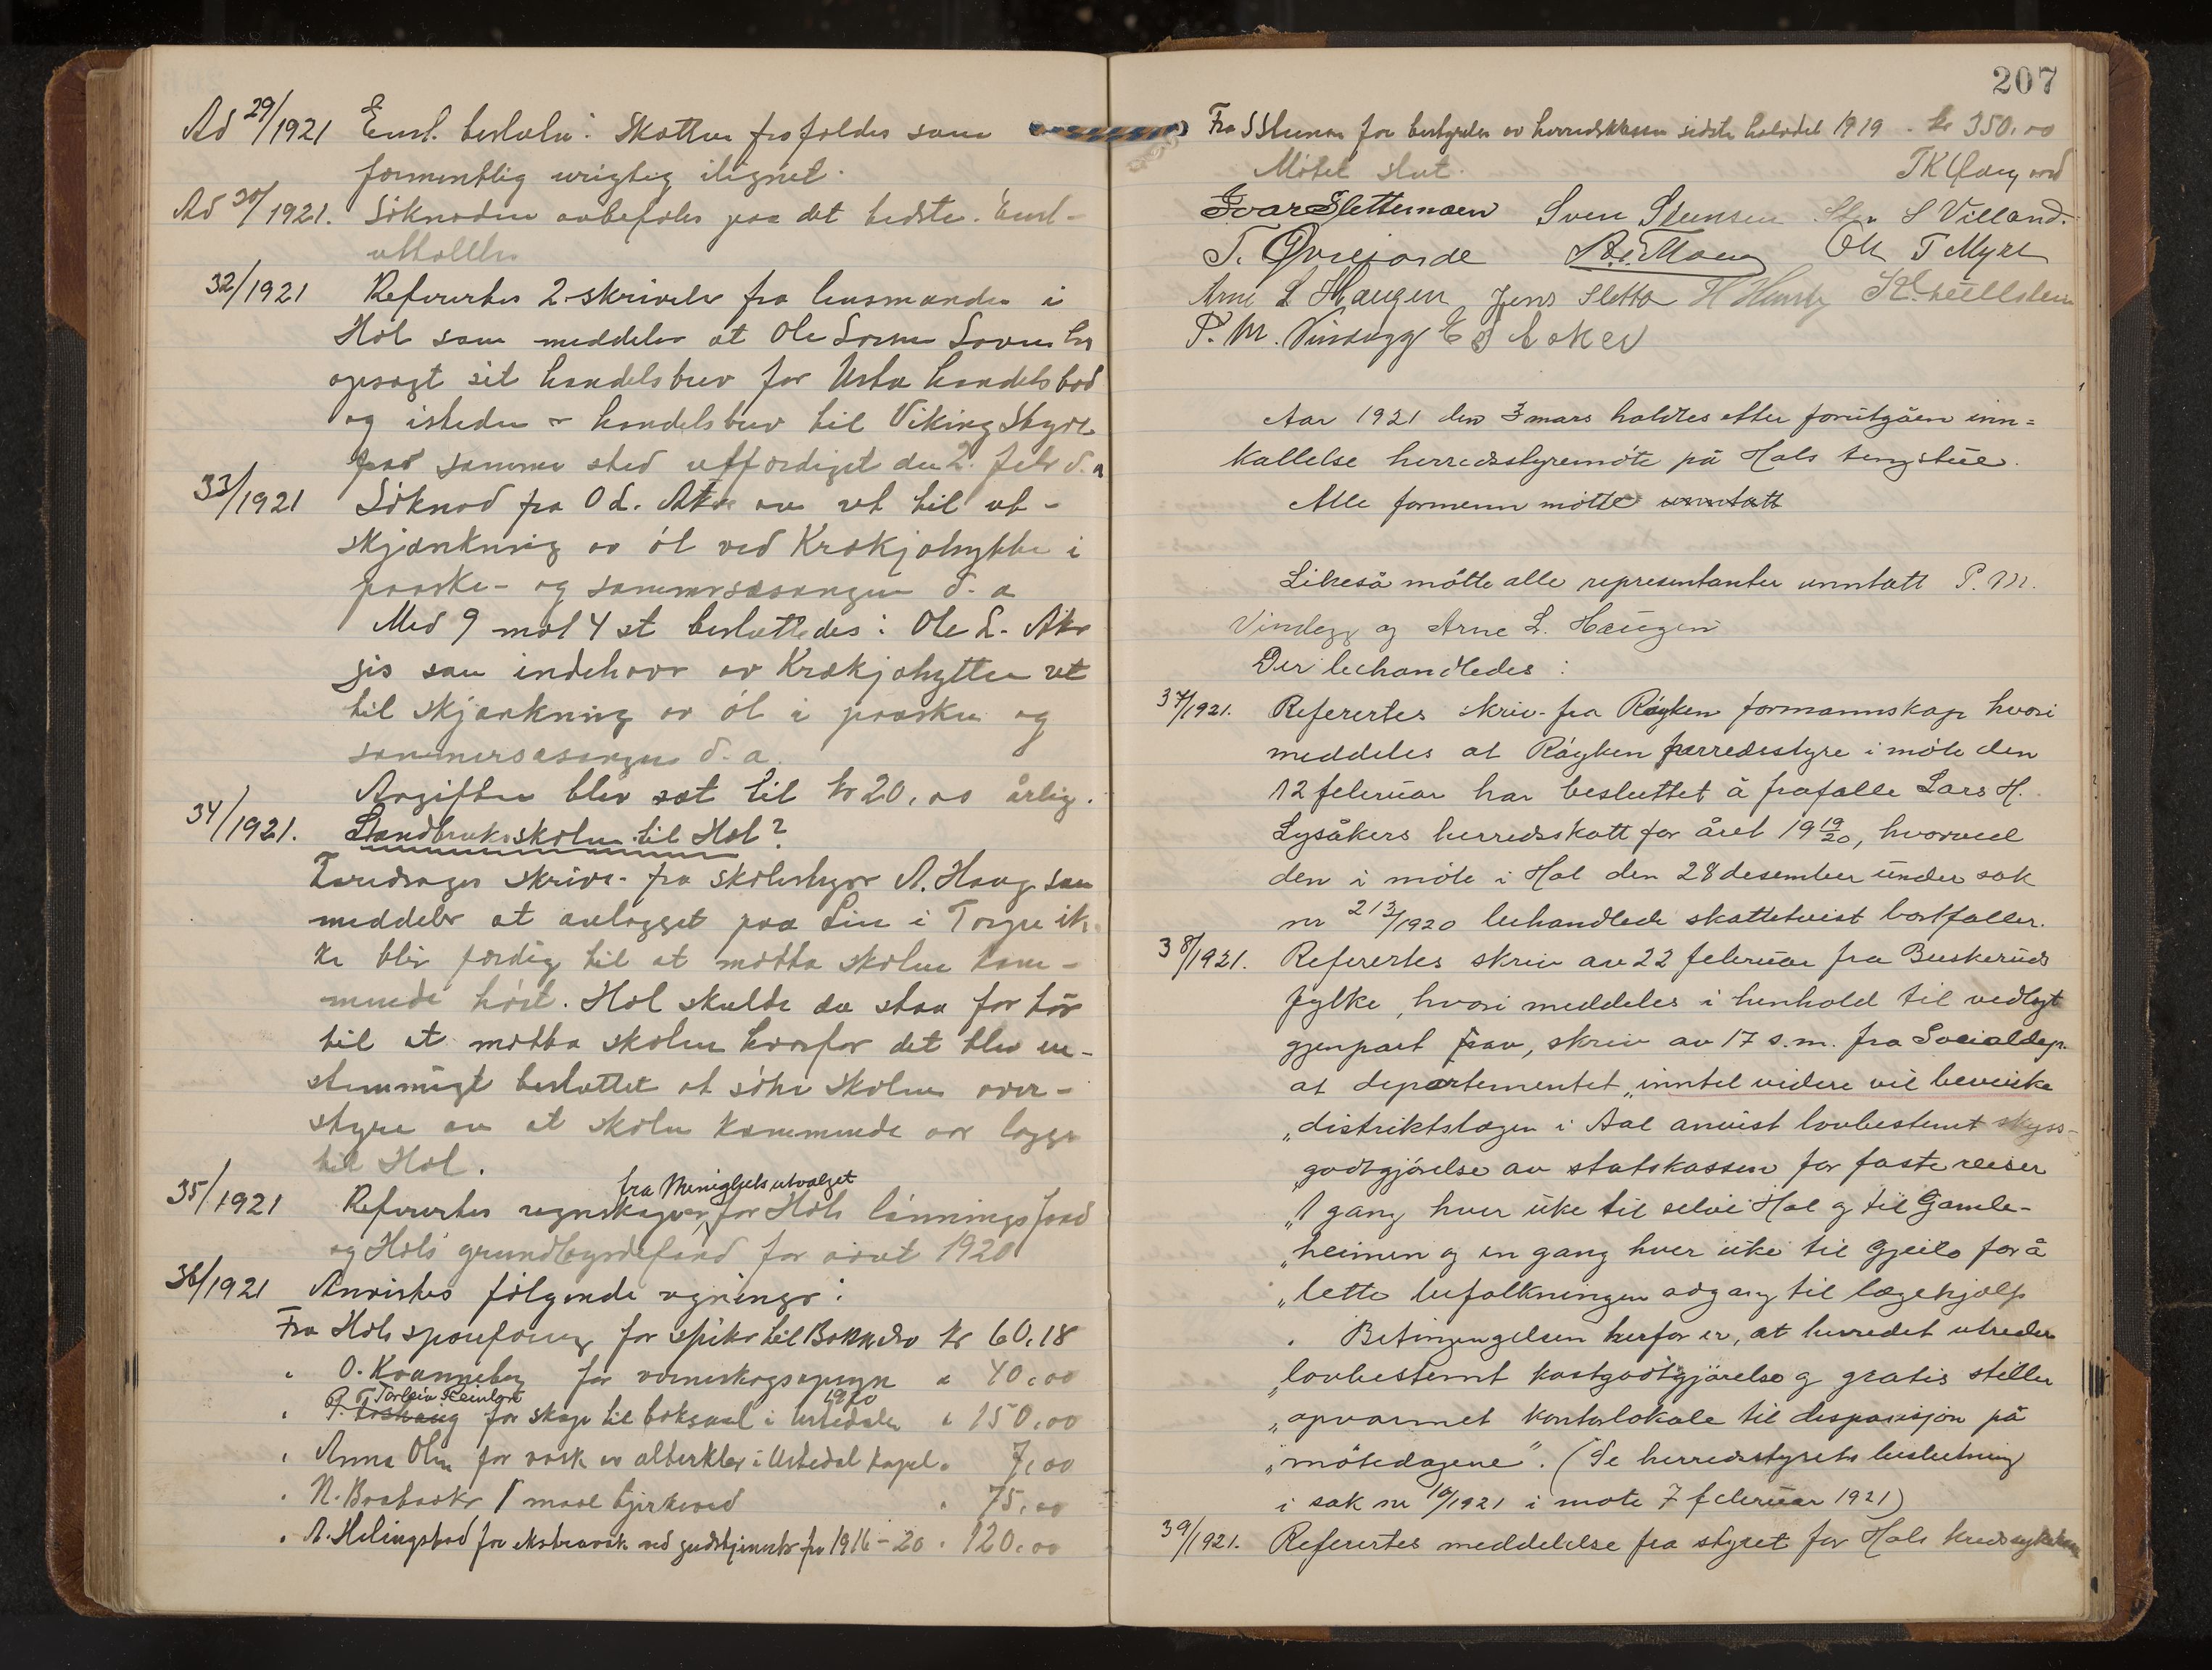 Ad 29/1921 Enst. besluttn: Skatten frafaldes som
formentlig urigtig ilignet.
Ad 30/1921. Söknaden anbefales paa det bedste. Enst-
32/1921 Refereertes 2 skrivelser fra lensmanden i
Hol som meddeler at Ole Larsen har
opsagt sit handelsbrev for Usta handelsbod
og isteden er handelsbrev til Viking
paa samme sted utfærdiget den 2. febr d. a
33/1921 Söknad fra O L. Aker om ret til ut-
skjænkning av öl ved Krækjahytten i
paaske- og sommersæsongen d. a
Med 9 mot 4 st besluttedes: Ole L. Aker
gis som indehaver av Krækjahytten ret
til skjænkning av öl i paasken og
sommersæsongen d. a.
Avgiften blev sat til kr 20,00 årlig.
34/1921. Landbruksskolen til Hol?
Foredrages skrive- fra skolestyrer A. Haug som
meddeler at anlægget paa Lie i Torpe ik-
ke blir færdig til at motta skolen kom-
mende höst. Hol skulde da staa for tör
til at motta skolen hvorfor det blev en-
stemmigt besluttet at söke skolens over-
styre om at skolen kommende aar lægges
til Hol.
fra Menighetsutvalget
35/1921 Refereertes regnskaper for Hols lönningsfond
og Hols grundbyrdefond for aaret 1920
36/1921 Anvistes fölgende regninger:
Fra Hols sparefoening for spiker til kr 60.18
" O. Kvanneberg for " 40,00
Torleiv Reinton 1920
" for skap til boksaml i Ustedalen " 150,00
" Anna Olsen for vask av alterklær i Ustedal kapel " 7,00
" N. Braabakke 1 maal bjerkeved " 75,00
" A. Helingstad for ekstravask ved gudstjenester fra 1916-20 " 120,00
207
Fra S Stensen for bestyrelse av herredskassen sidste halvdel 1919 . kr 350,00
Mötet slut.
Ivar Slettemoen Sven Stensen Sten S Villand.
T. Øvrejorde Ole T Myre
Arne L Haugen Jens Sletto
P. M. Vindegg E S Acker
Aar 1921 den 3 mars holdtes etter forutgåen inn=
kallelse herredsstyremöte på Hols tingstue.
Alle formenn mötte unntatt
Likeså mötte alle representanter unntatt P. M.
Vindegg og Arne L. Haugen
Der behandledes:
37/1921. Referertes skriv- fra Röyken formannskap hvori
meddeles at Röyken herredsstyre i möte den
12 februar har besluttet å frafalle Lars H.
Lysåkers herredsskatt for året 1919/20, hvorved
den i möte i Hol den 28 desember under sak
nr 213/1920 behandlede skattetvist bortfaller.
38/1921. Referertes skriv av 22 februar fra Buskeruds
fylke, hvori meddeles i henhold til vedlagt
gjenpart frav, skriv av 17 s.m. fra Socialdep.
at departementet „inntil videre vil bevirke
„distriktslægen i Aal anvist lovbestemt skyss-
„godtgjörelse av statskassen for faste reiser
„1 gang hver uke til selve Hol og til Gamle-
„heimen og en gang hver uke til Gjeilo for å
„lette befolkningen adgang til lægehjælp
. Betingengelsen herfor er, at herredet utreder
„lovbestemt kostgodtgjörelse og gratis stiller
„opvarmet kontorlokale til disposisjon på
„mötedagene". (Se herredsstyrets beslutning
i sak nr 10/1921 i mote 7 februar 1921)
39/1921. Referertes meddelelse fra styret for Hols kredssykekasse